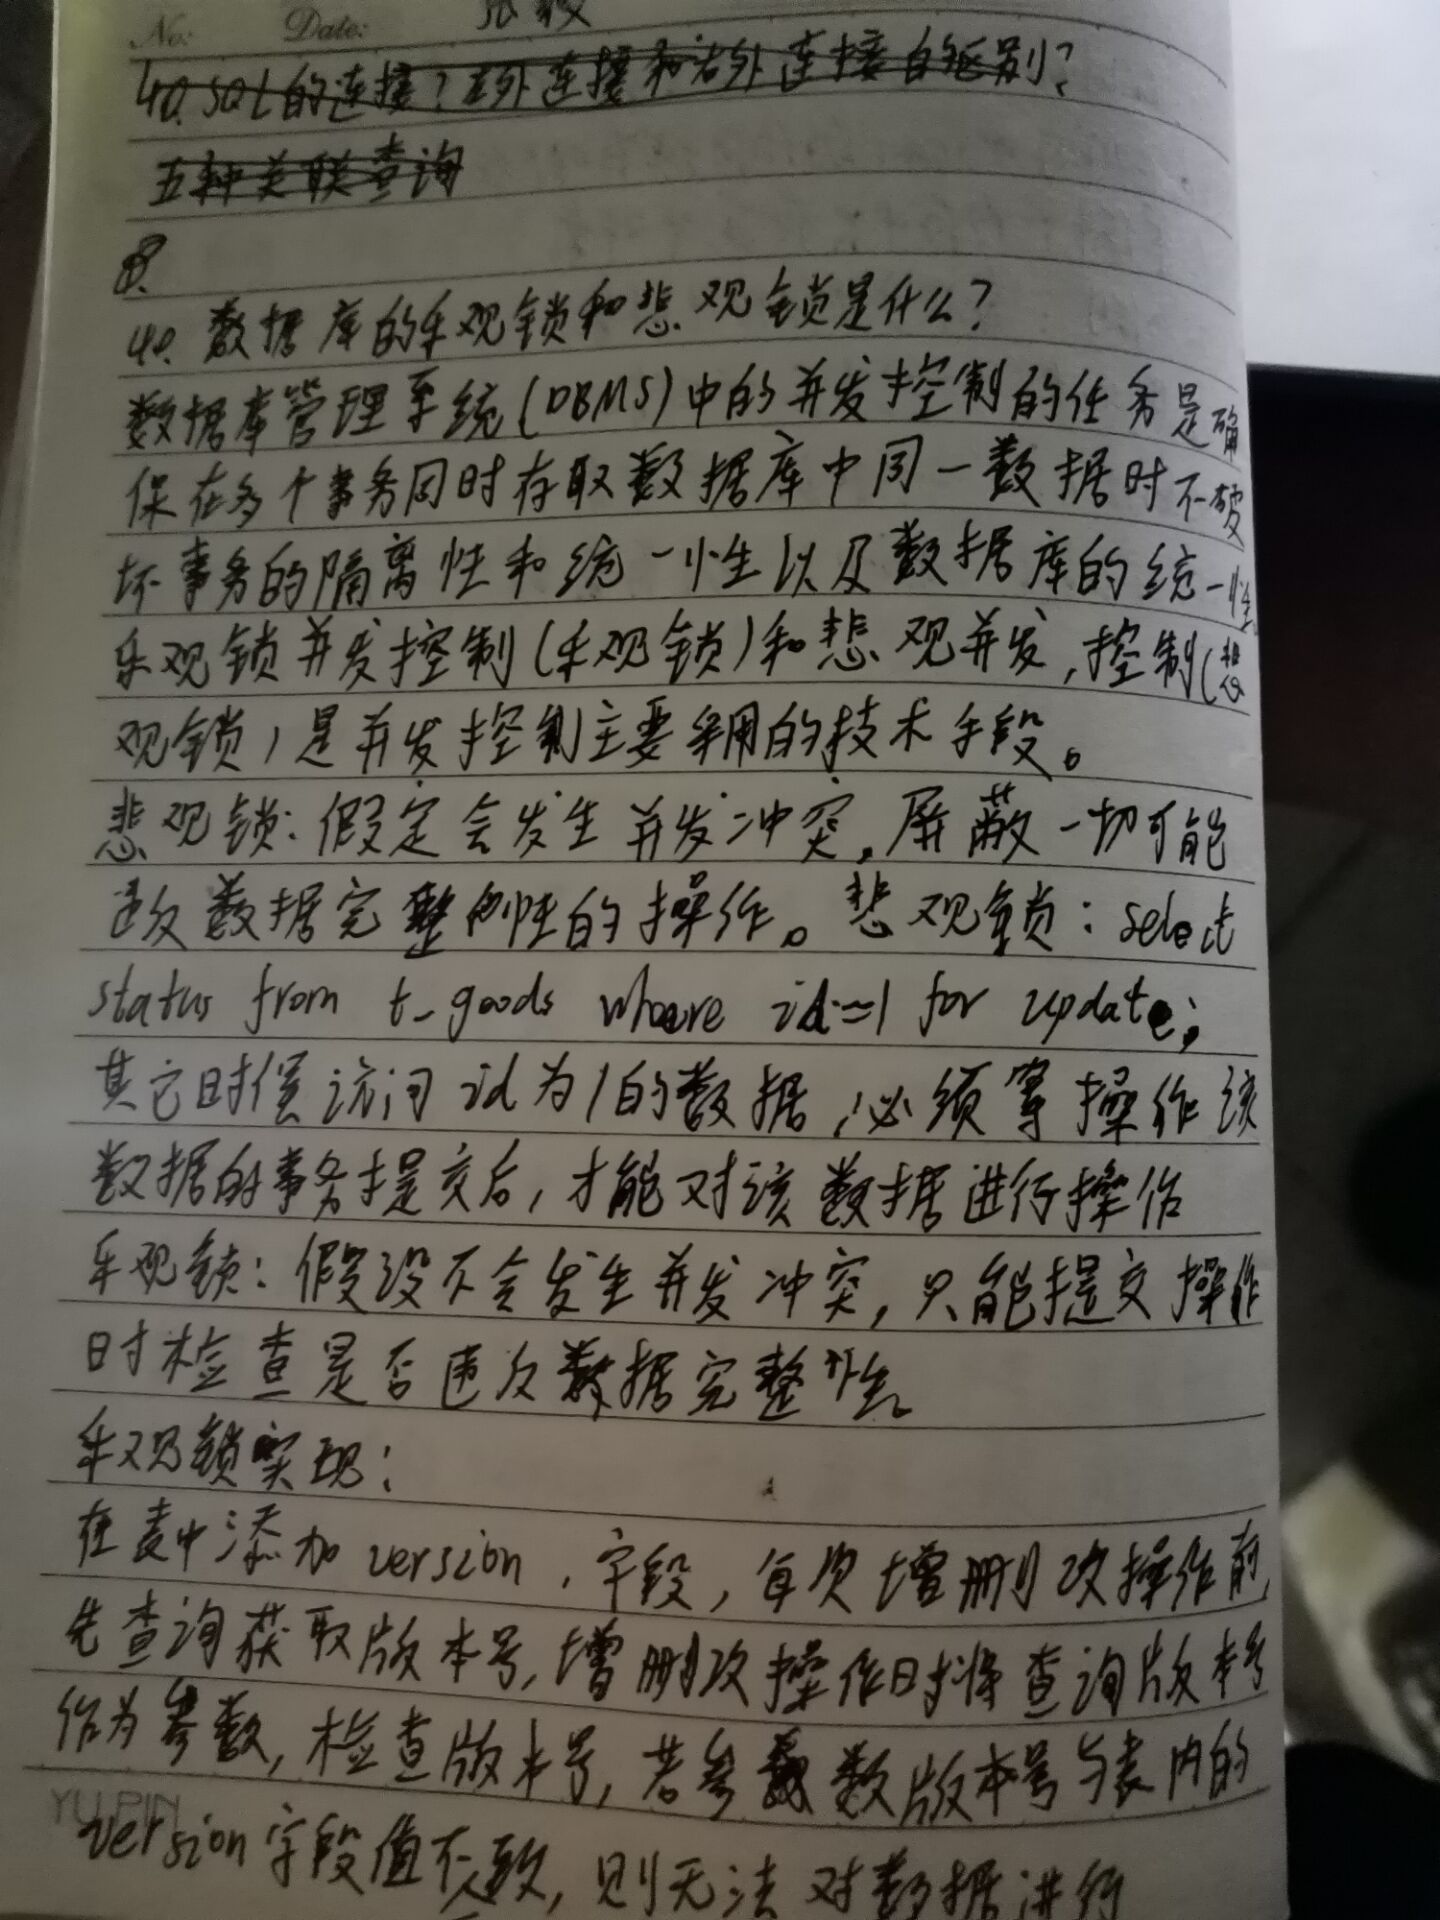 No: Date:
40. SQL的连接？左外连接和右外连接的区别？
五种关联查询
8.
40. 数据库的乐观锁和悲观锁是什么？
数据库管理系统(DBMS)中的并发控制的任务是确
保在多个事务同时存取数据库中同一数据时不破
坏事务的隔离性和统一性以及数据库的统一性
乐观锁并发控制(乐观锁)和悲观并发,控制(悲
观锁)是并发控制主要采用的技术手段。
悲观锁：假定会发生并发冲突，屏蔽一切可能
违反数据完整性的操作。悲观锁：select
status from t_goods where id=1 for update;
其它时候访问id为1的数据,必须等操作该
数据的事务提交后,才能对该数据进行操作
乐观锁：假设不会发生并发冲突,只能提交操作
时检查是否违反数据完整性。
乐观锁实现：
在表中添加version,字段,每次增删改操作前,
先查询获取版本号,增删改操作时将查询版本号
作为参数,检查版本号,若参数版本号与表内的
YU PIN
version字段值不一致,则无法对数据进行